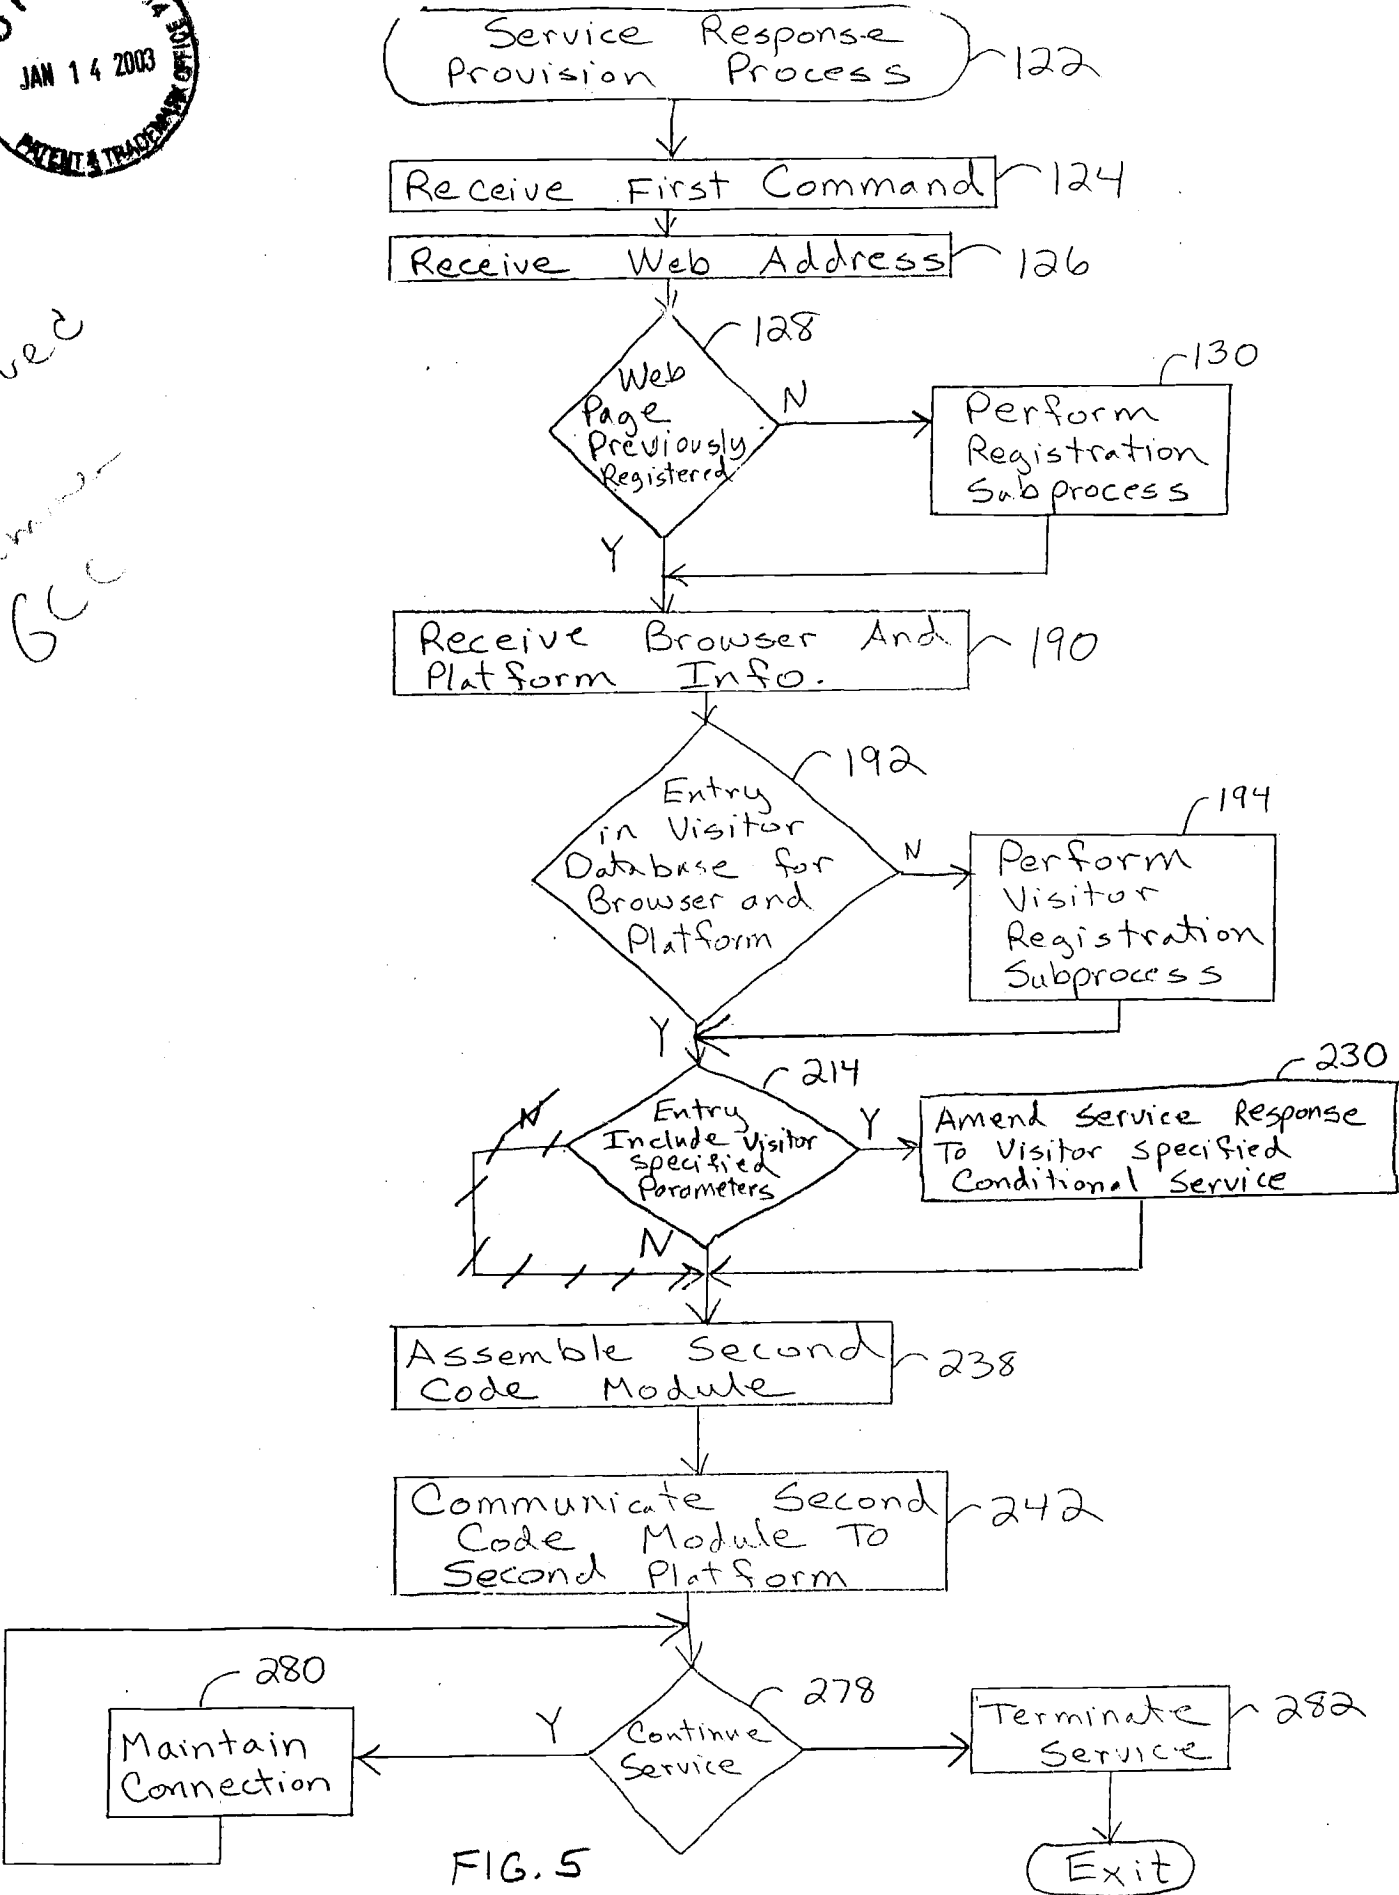 JAN 14 2003
PATENT & TRADEMARK OFFICE
Service Response
Provision Process
122
Receive First Command
124
Receive Web Address
126
128
Web
Page
Previously
Registered
N
Y
130
Perform
Registration
Subprocess
Receive Browser And
Platform Info.
190
192
Entry
in Visitor
Database for
Browser and
Platform
N
Y
194
Perform
Visitor
Registration
Subprocess
214
Entry
Include Visitor
Specified
Parameters
N
Y
N
230
Amend Service Response
To Visitor Specified
Conditional Service
Assemble Second
Code Module
238
Communicate Second
Code Module To
Second Platform
242
280
Maintain
Connection
Y
278
Continue
Service
Terminate
Service
282
Exit
FIG. 5
GCC